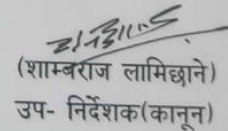 (शाम्बराज लामिछाने)
उप- निर्देशक(कानून)